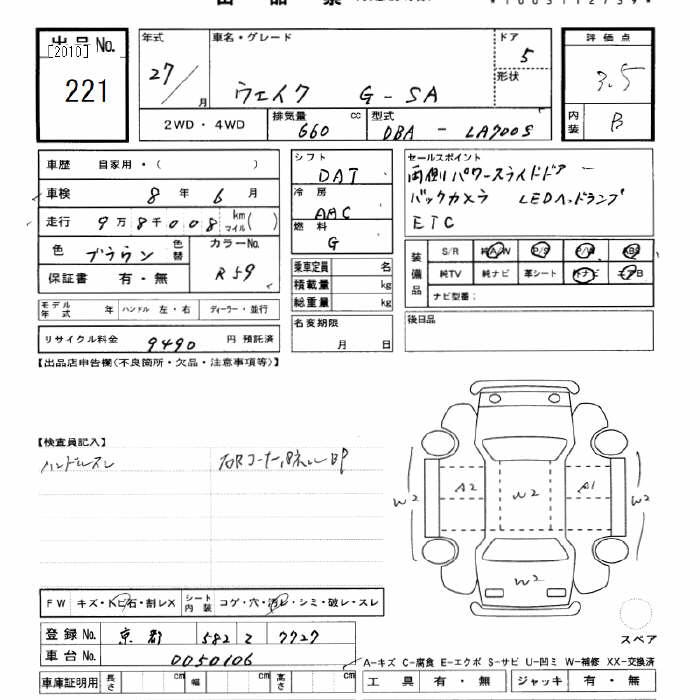 出品No.
[2010]
221
年式
27/
月
車名・グレード
ウェイク G-SA
ドア
5
形状
評価点
3.5
内装
B
2WD・4WD
排気量
660
cc
型式
DBA - LA700S
車歴 自家用・( )
車検 8 年 6 月
走行 9万8千008 km マイル( )
色 ブラウン 色替
カラーNo.
R59
保証書 有・無
モデル年式 年 ハンドル 左・右 ディーラー・並行
リサイクル料金 9490 円 預託済
シフト
DAT
冷房
AAC
燃料
G
乗車定員 名
積載量 kg
総重量 kg
名変期限
月 日
セールスポイント
両側パワースライドドア
バックカメラ LEDヘッドランプ
ETC
装備品
S/R 純A/W P/S P/W ABS
純TV 純ナビ 革シート 外ナビ エアB
ナビ型番:
後日品
【出品店申告欄(不良箇所・欠品・注意事項等)】
【検査員記入】
ハンドルスレ
右Rコーナーパネル BP
A2
W2
A1
W2
W2
W2
スペア
FW キズ・トビ石・割レX シート内装 コゲ・穴・汚レ・シミ・破レ・スレ
登録No. 京都 582 て 7727
車台No. 0050106
車庫証明用 長さ cm 幅 cm 高さ cm
A-キズ C-腐食 E-エクボ S-サビ U-凹ミ W-補修 XX-交換済
工具 有・無 ジャッキ 有・無